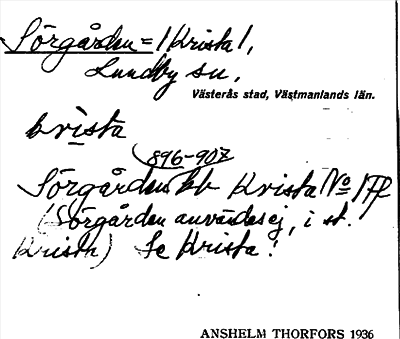 Sörgården = / Krista /,
Lundby sn,
Västerås stad, Västmanlands län.
krìsta
896-907
Sörgården bb Krista No 1
(Sörgården användes ej, i st.
Krista) Se Krista!
ANSHELM THORFORS 1936